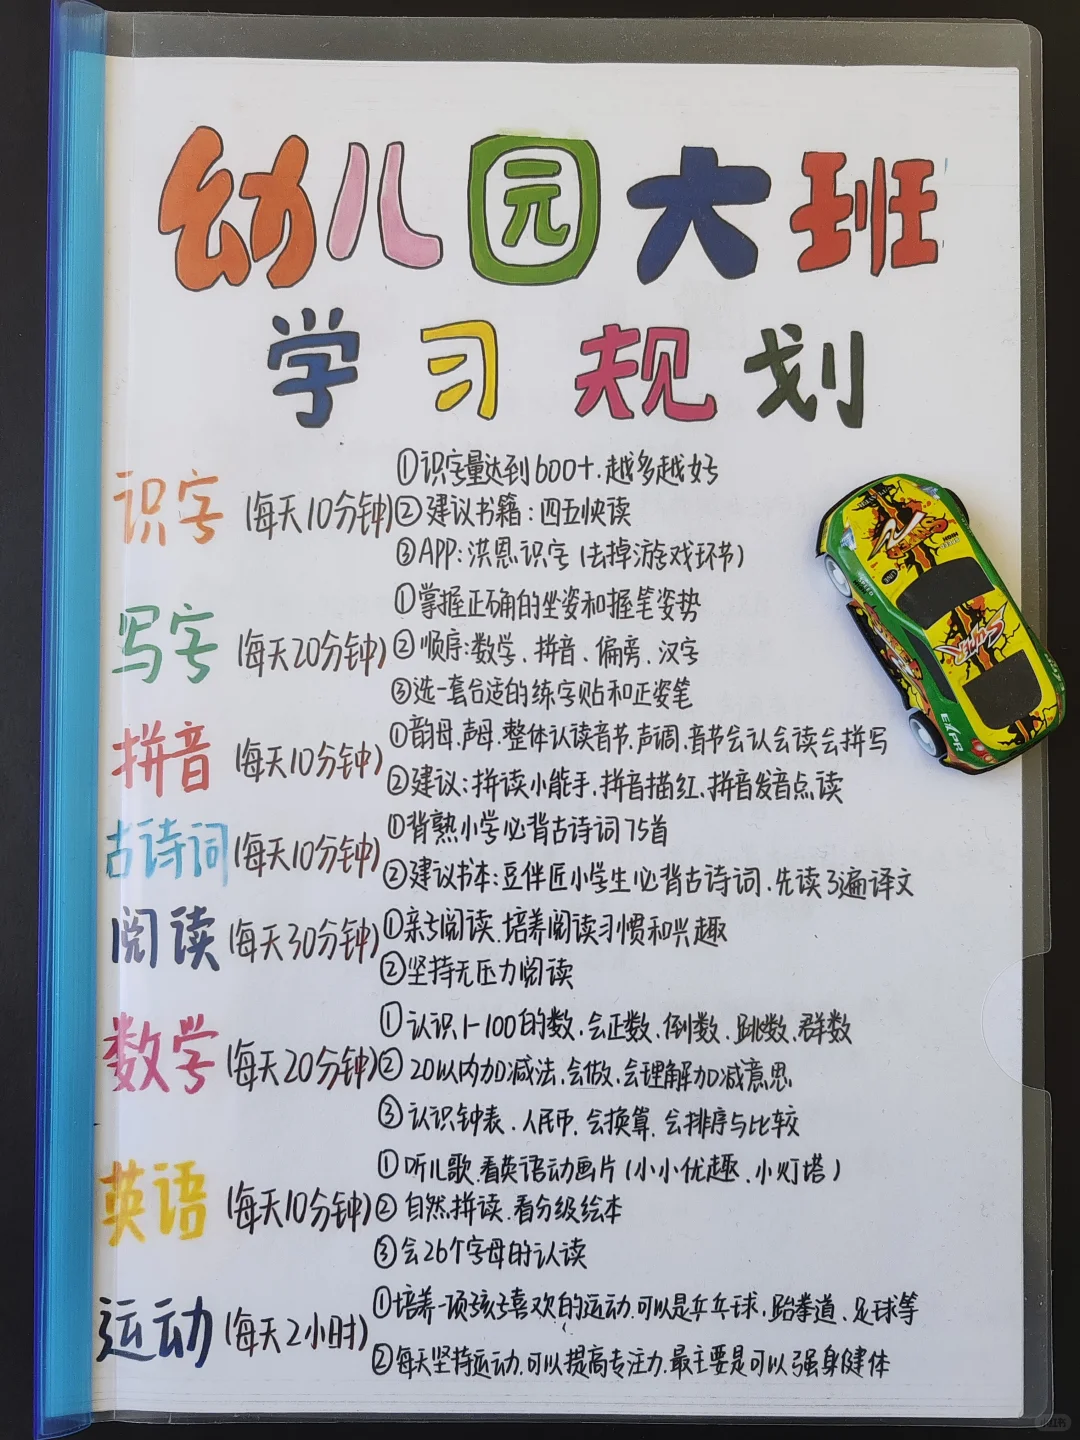 幼儿园大班
学习规划
识字(每天10分钟)
①识字量达到600+.越多越好
②建议书籍:四五快读
③APP:洪恩识字(去掉游戏环节)
写字(每天20分钟)
①掌握正确的坐姿和握笔姿势
②顺序:数学、拼音、偏旁、汉字
③选一套合适的练字贴和正姿笔
拼音(每天10分钟)
①韵母.声母.整体认读音节.声调.音节会认会读会拼写
②建议:拼读小能手.拼音描红.拼音发音点读
古诗词(每天10分钟)
①背熟小学必背古诗词75首
②建议书本:豆伴匠小学生必背古诗词.先读3遍译文
阅读(每天30分钟)
①亲子阅读.培养阅读习惯和兴趣
②坚持无压力阅读
数学(每天20分钟)
①认识1-100的数.会正数、倒数、跳数、群数
②20以内加减法.会做.会理解加减意思
③认识钟表、人民币.会换算.会排序与比较
英语(每天10分钟)
①听儿歌.看英语动画片(小小优趣、小灯塔)
②自然拼读.看分级绘本
③会26个字母的认读
运动(每天2小时)
①培养一项孩子喜欢的运动.可以是乒乓球、跆拳道、足球等
②每天坚持运动.可以提高专注力.最主要是可以强身健体
SUPER
EXPR
小红书